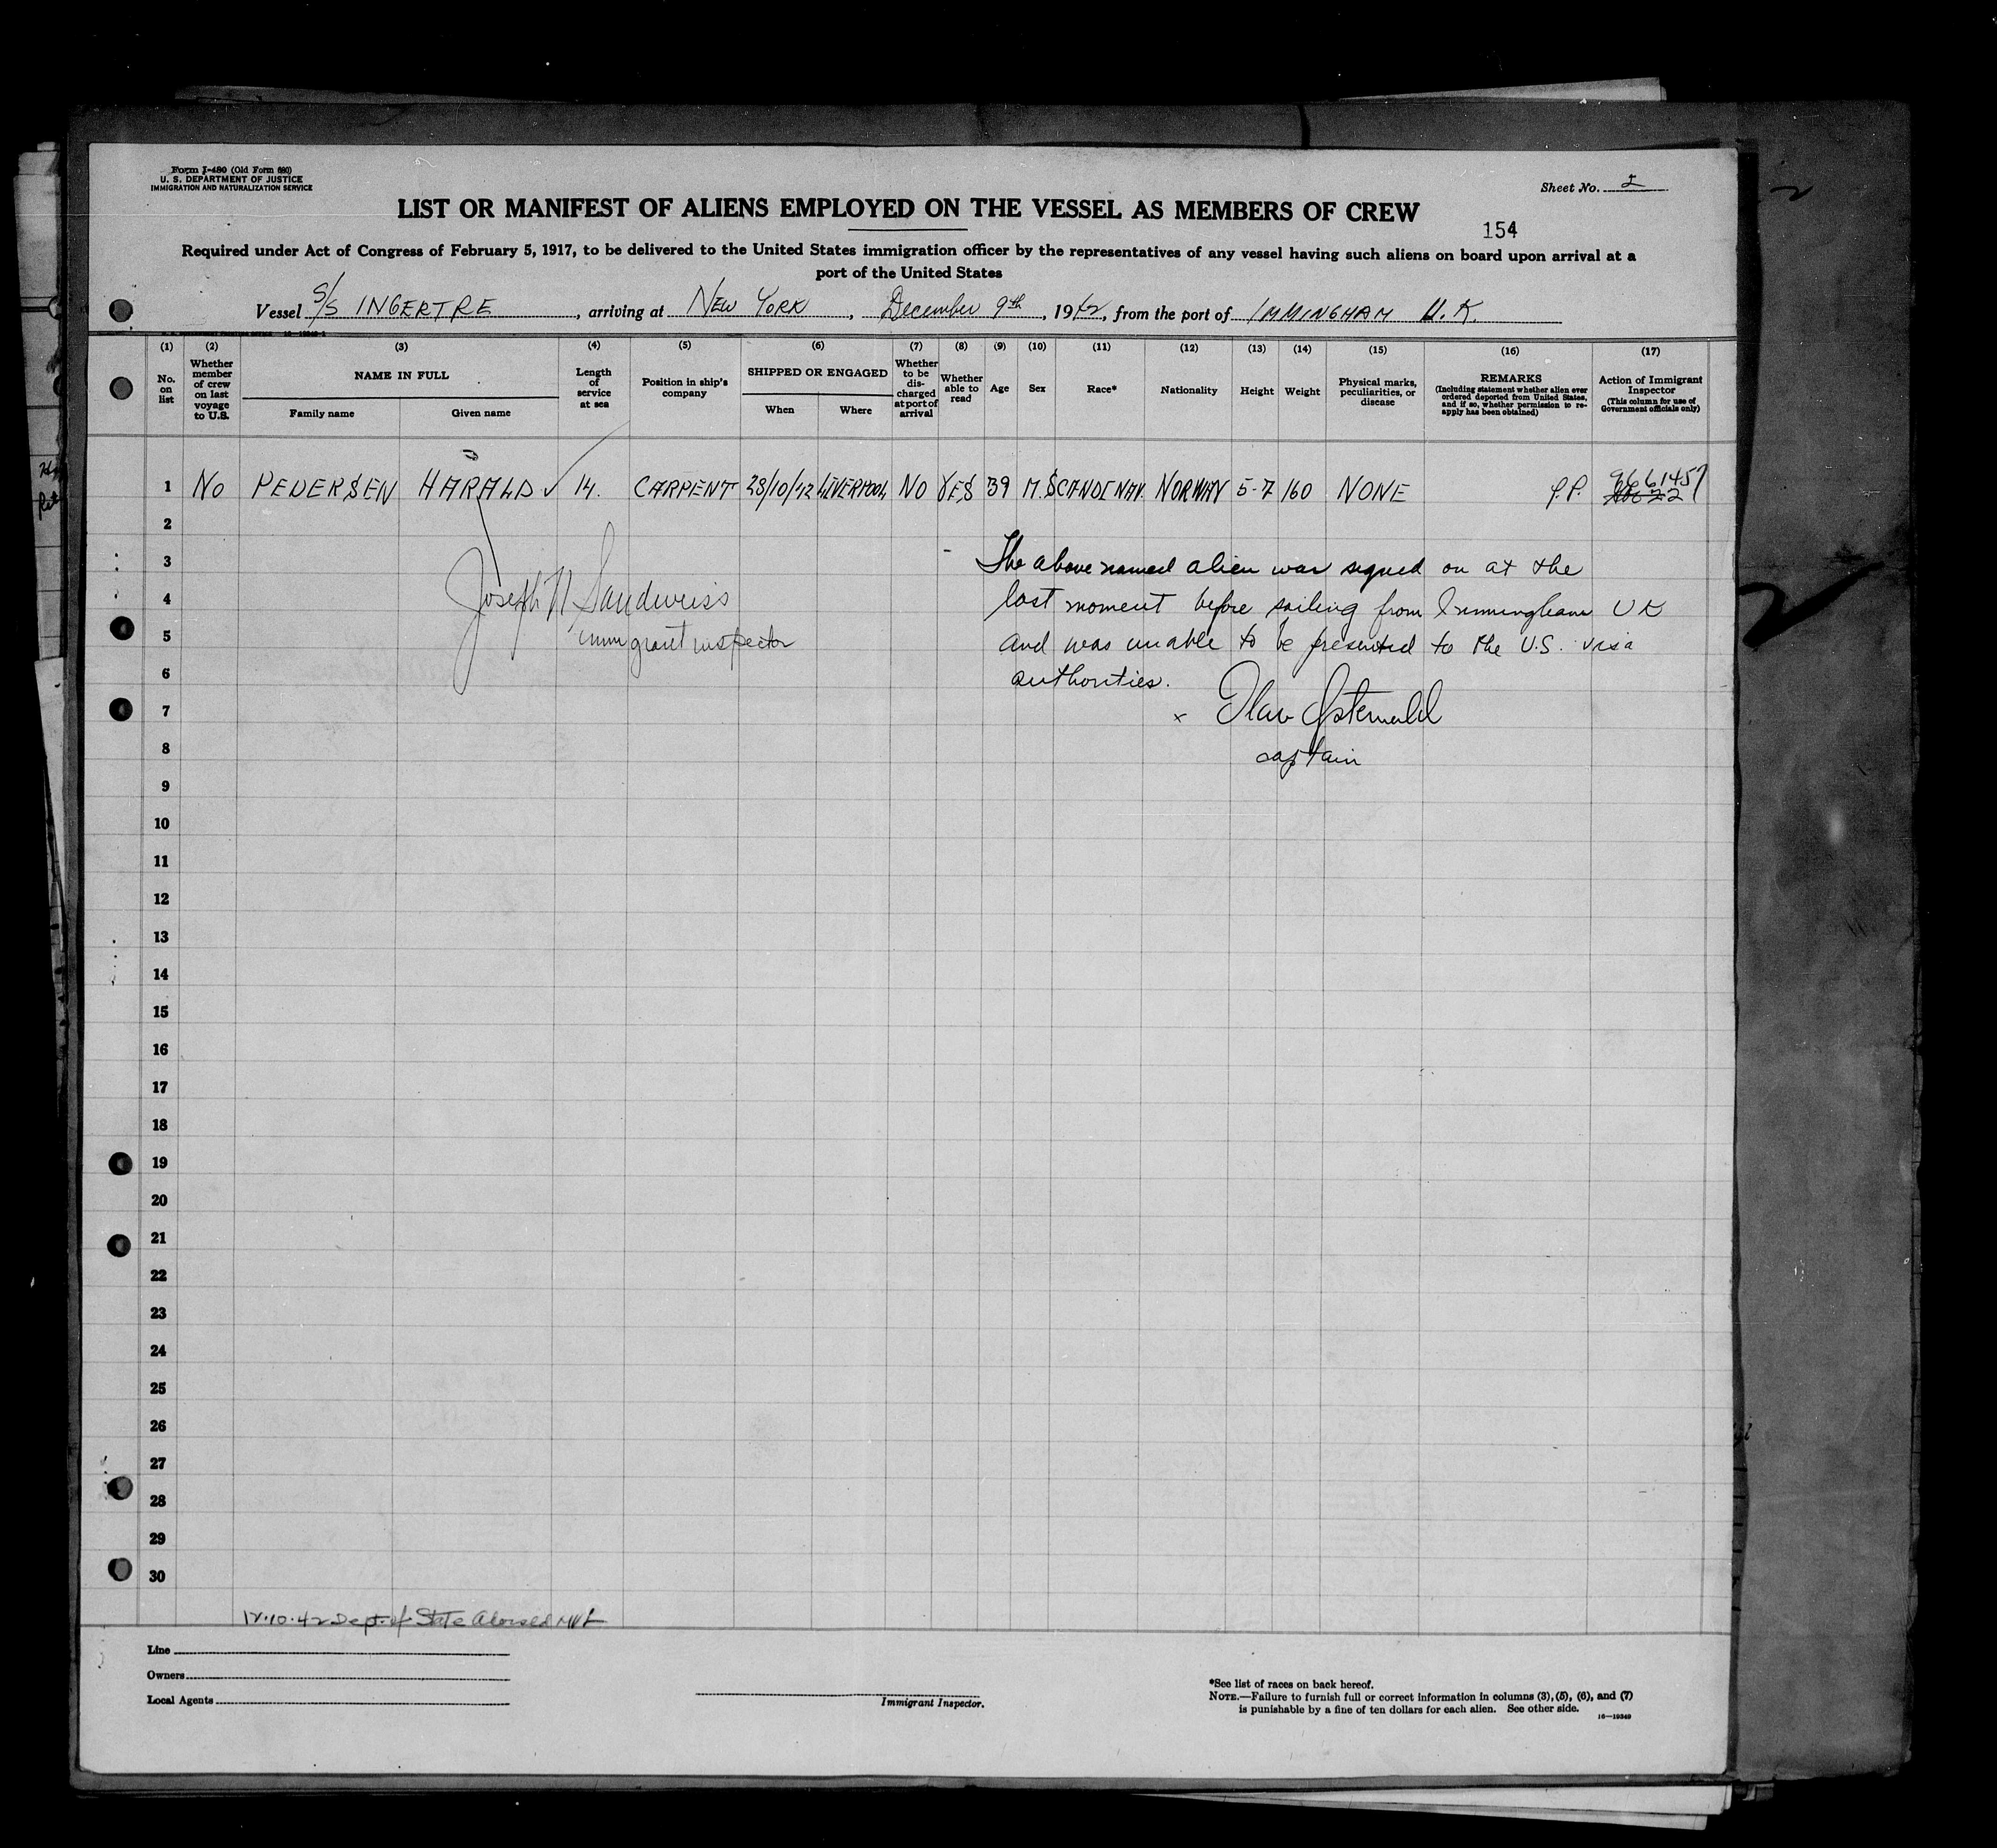 Form I-480 (Old Form 680)
U. S. DEPARTMENT OF JUSTICE
IMMIGRATION AND NATURALIZATION SERVICE
Sheet No. 2
LIST OR MANIFEST OF ALIENS EMPLOYED ON THE VESSEL AS MEMBERS OF CREW
154
Required under Act of Congress of February 5, 1917, to be delivered to the United States immigration officer by the representatives of any vessel having such aliens on board upon arrival at a
port of the United States
Vessel S/S INGERTRE, arriving at NEW YORK, December 9th, 1942, from the port of IMMINGHAM U.K.
(1) (2) (3) (4) (5) (6) (7) (8) (9) (10) (11) (12) (13) (14) (15) (16) (17)
No. on list
Whether member of crew on last voyage to U.S.
NAME IN FULL
Family name
Given name
Length of service at sea
Position in ship's company
SHIPPED OR ENGAGED
When
Where
Whether to be discharged at port of arrival
Whether able to read
Age
Sex
Race*
Nationality
Height
Weight
Physical marks, peculiarities, or disease
REMARKS
(Including statement whether alien ever ordered deported from United States, and if so, whether permission to re-apply has been obtained)
Action of Immigrant Inspector
(This column for use of Government officials only)
1 No PEDERSEN HARALD 14. CARPENT 28/10/42 LIVERPOOL NO YES 39 M. SCANDINAV. NORWAY 5-7 160 NONE P.P. 9661457
2
3 The above named alien was signed on at the
4 Joseph N Sandweiss last moment before sailing from Immingham UK
5 immigrant inspector and was unable to be presented to the U.S. visa
6 authorities.
7 x Olav Østervold
8 captain
9
10
11
12
13
14
15
16
17
18
19
20
21
22
23
24
25
26
27
28
29
30
12.10.42 Dept. of State
Line
Owners
Local Agents
Immigrant Inspector.
*See list of races on back hereof.
NOTE.—Failure to furnish full or correct information in columns (3), (5), (6), and (7)
is punishable by a fine of ten dollars for each alien. See other side.
16—19349